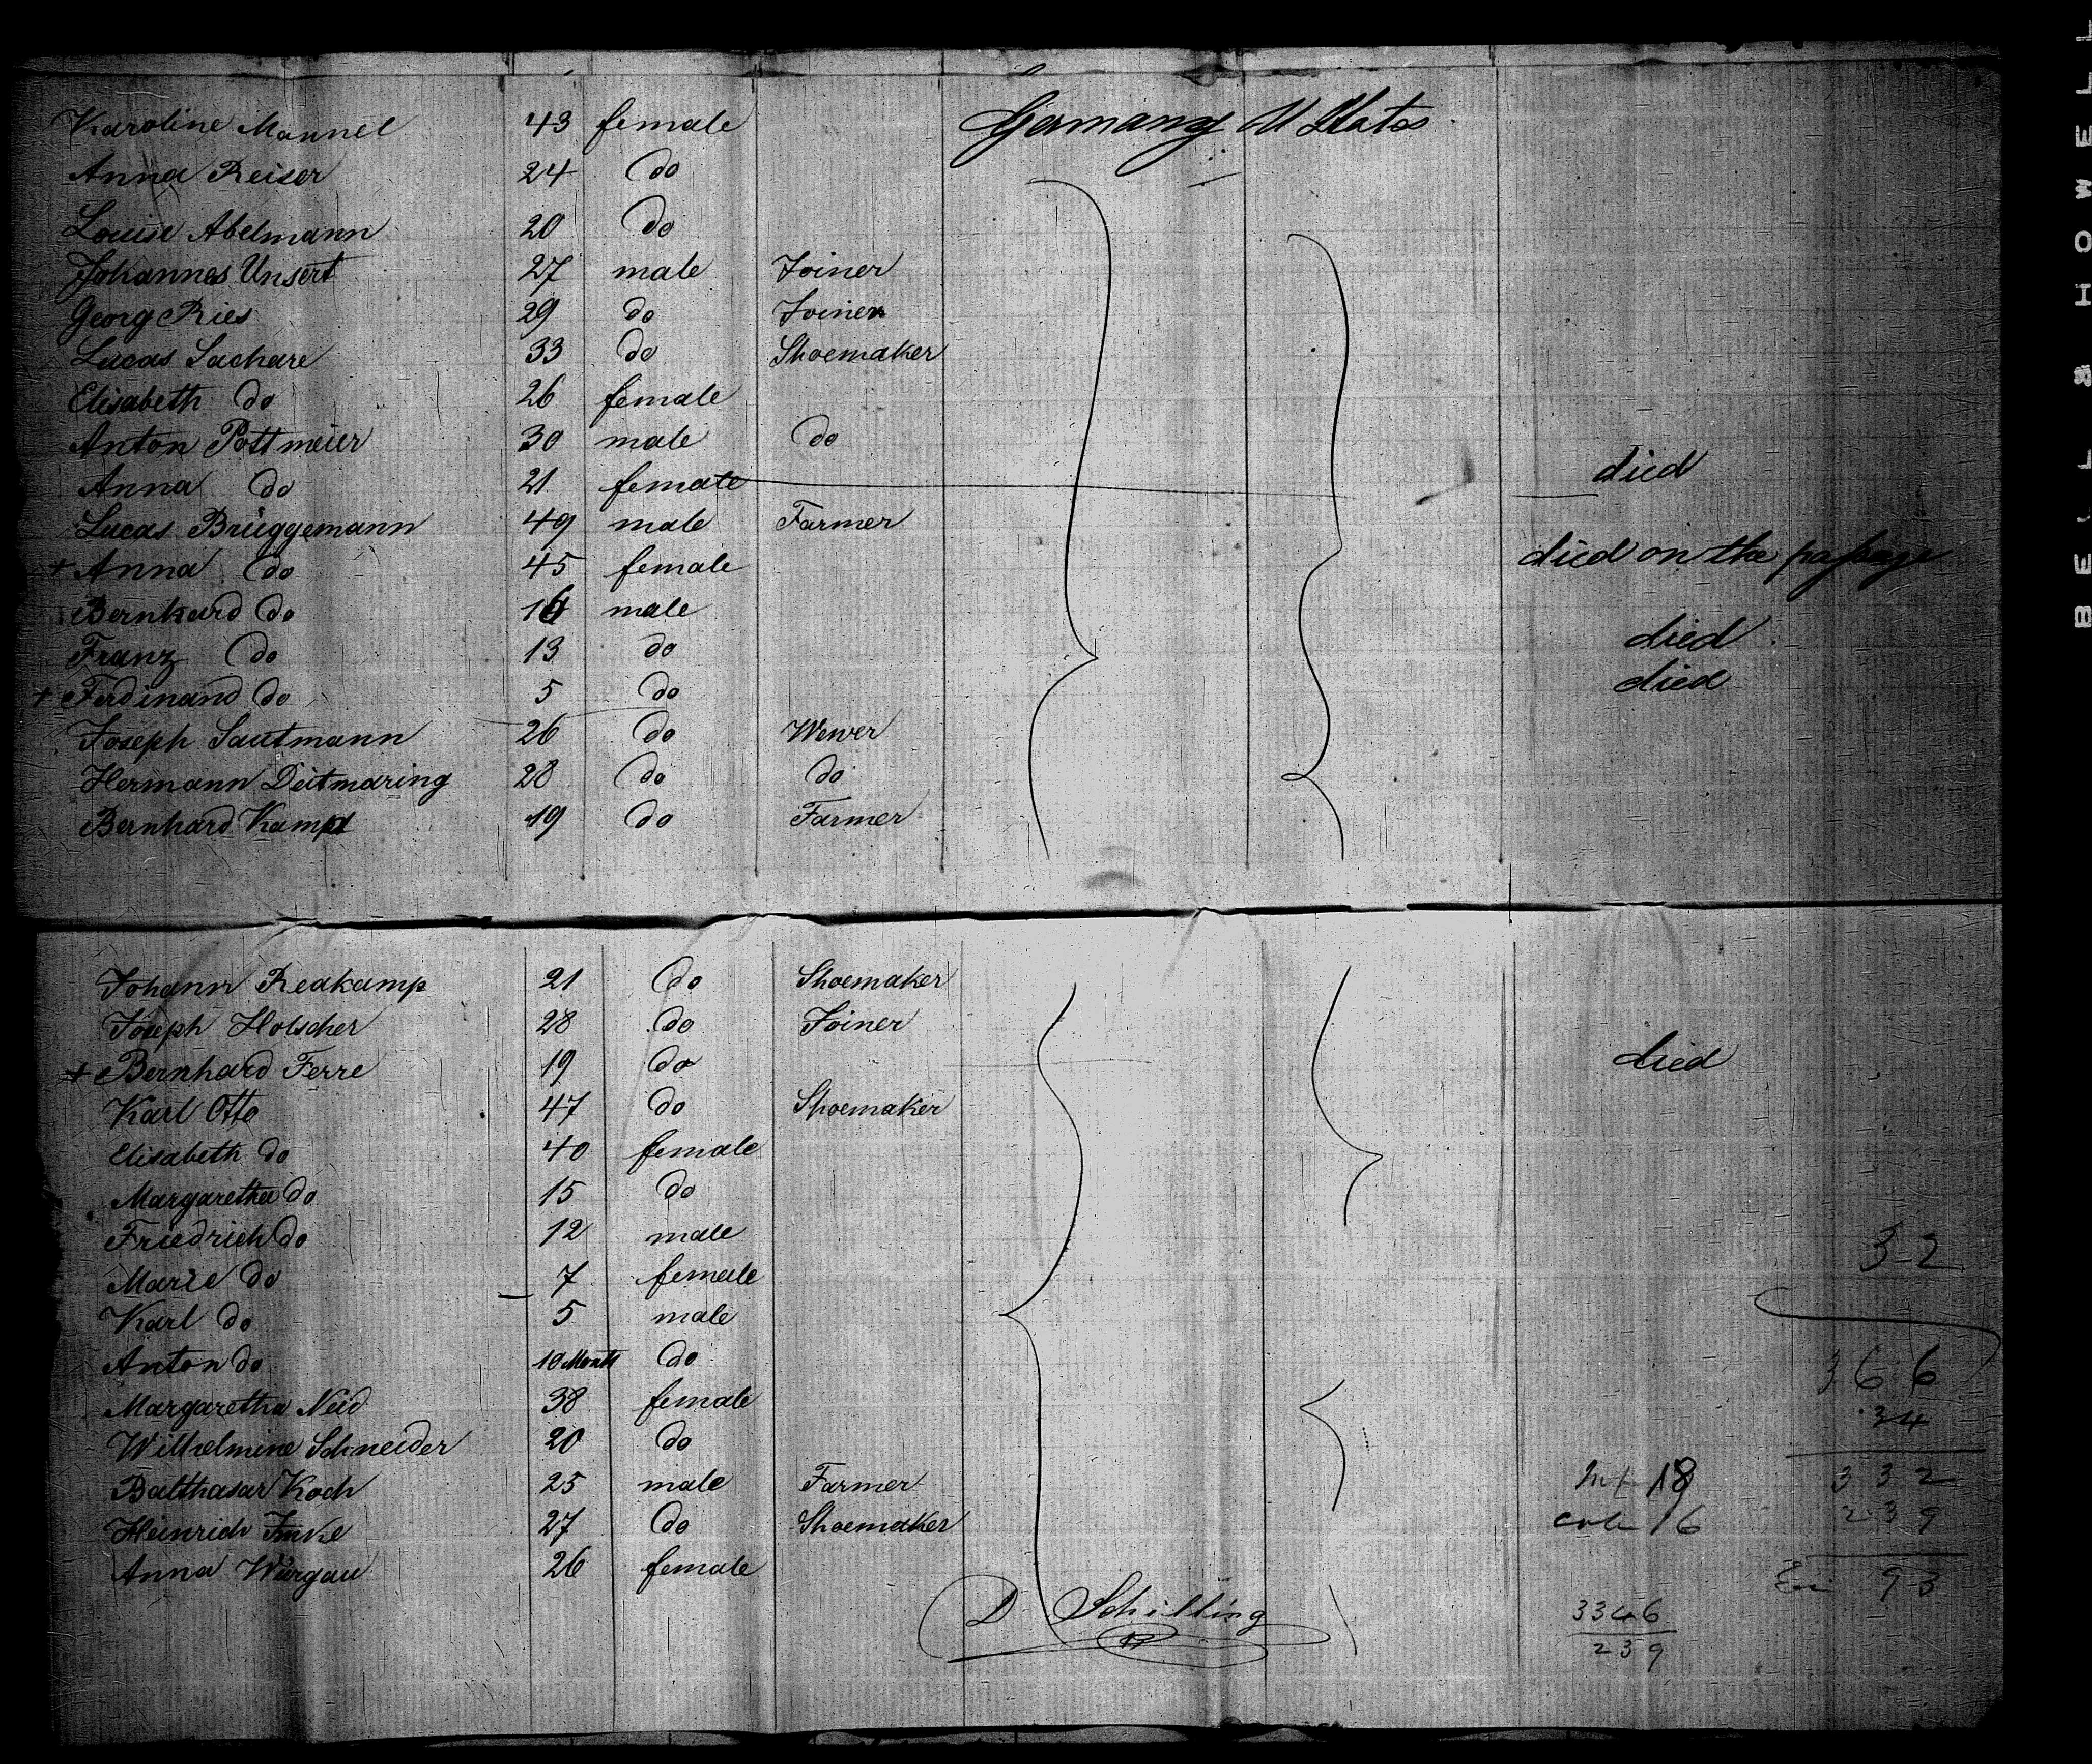 Karoline Mannel 43 female Germany U States
Anna Reiser 24 do
Louise Abelmann 20 do
Johannes Unsert 27 male Joiner
Georg Ries 29 do Joiner
Lucas Sachare 33 do Shoemaker
Elisabeth do 26 female
Anton Pottmeier 30 male do
Anna do 21 female died
Lucas Brüggemann 49 male Farmer
+ Anna do 45 female died on the passage
Bernhard do 16 male
Franz do 13 do died
+ Ferdinand do 5 do died
Joseph Sautmann 26 do Wewer
Hermann Deitmaring 28 do do
Bernhard Kamp 19 do Farmer
Johann Redkamp 21 do Shoemaker
Joseph Holscher 28 do Joiner
+ Bernhard Ferre 19 do died
Karl Otto 47 do Shoemaker
Elisabeth do 40 female
Margaretha do 15 do
Friedrich do 12 male
Marie do 7 female
Karl do 5 male
Anton do 10 Month do
Margaretha Neid 38 female
Wilhelmine Schneider 20 do
Balthasar Koch 25 male Farmer
Heinrich 27 do Shoemaker
Anna Würgau 26 female
D Schilling
32
366
34
18 332
16 239
93
3346
239
BELL & HOWELL